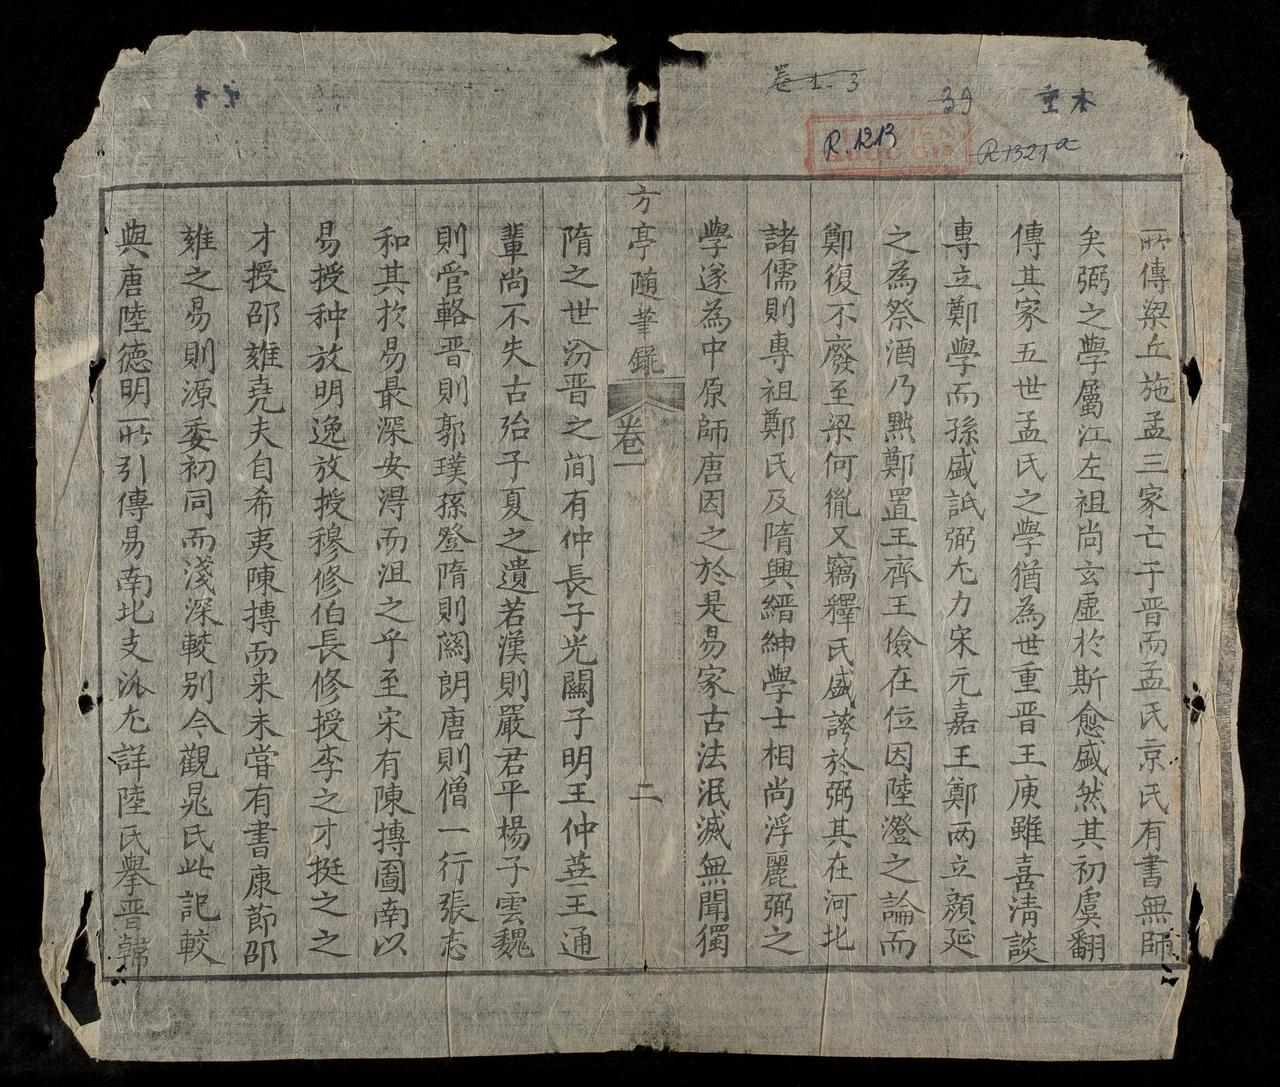 卷1-3
39
重本
R.1213
R1321a
THU VIEN
QUOC GIA
所傳梁丘施孟三家亡于晋而孟氏京氏有書無師
矣弼之學屬江左祖尚玄虛於斯愈盛然其初虞翻
傳其家五世孟氏之學猶為世重晋王庾雖喜清談
專立鄭學而孫盛詆弼尤力宋元嘉王鄭两立顔延
之為祭酒乃黜鄭置王齊王儉在位因陸澄之論而
鄭復不廢至梁何胤又竊釋氏盛談於弼其在河北
諸儒則專祖鄭氏及隋興縉紳學士相尚浮麗弼之
學遂為中原師唐因之於是易家古法泯滅無聞獨
方亭隨筆錄
卷一
二
隋之世汾晋之间有仲長子光關子明王仲華王通
輩尚不失古殆子夏之遺若漢則嚴君平楊子雲魏
則管輅晋則郭璞孫登隋則關朗唐則僧一行張志
和其於易最深安淂而沮之乎至宋有陳摶圖南以
易授种放明逸放授穆修伯長修授李之才挺之之
才授邵雍堯夫自希夷陳摶而来未嘗有書康節邵
雍之易則源委初同而淺深較别今觀晁氏此記較
與唐陸德明所引傳易南北支派尤詳陸氏舉晋韓